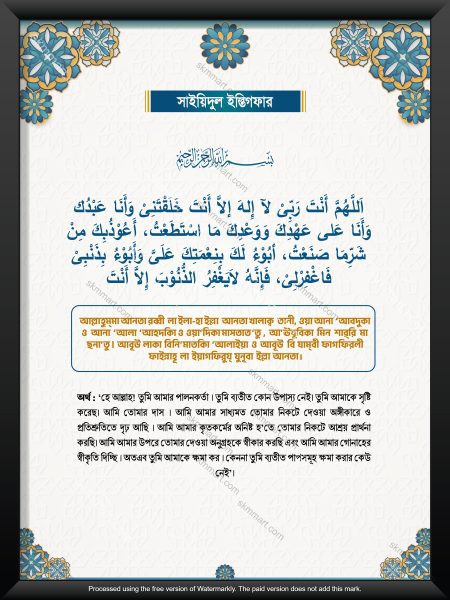 সাইয়িদুল ইস্তিগফার
بِسْمِ اللهِ الرَّحْمٰنِ الرَّحِيْمِ
اَللَّهُمَّ أَنْتَ رَبِّىْ لآ إِلهَ إلاَّ أَنْتَ خَلَقْتَنِىْ وَأَنَا عَبْدُكَ
وَأَنَا عَلى عَهْدِكَ وَوَعْدِكَ مَا اسْتَطَعْتُ، أَعُوْذُبِكَ مِنْ
شَرِّمَا صَنَعْتُ، أبُوْءُ لَكَ بِنِعْمَتِكَ عَلَىَّ وَأَبُوْءُ بِذَنْبِىْ
فَاغْفِرْلِىْ، فَإِنَّهُ لاَيَغْفِرُ الذُّنُوْبَ إِلاَّ أَنْتَ
আল্লাহুম্মা আনতা রব্বী লা ইলা-হা ইল্লা আনতা খালাক্ব তানী, ওয়া আনা 'আবদুকা
ও আনা 'আলা 'আহদিকা ও ওয়া'দিকা মাসতাত'তু, আ'ঊযুবিকা মিন শাররি মা
ছনা'তু। আবূউ লাকা বিনি'মাতিকা 'আলাইয়া ও আবূউ বি যাম্বী ফাগফিরলী
ফাইন্নাহূ লা ইয়াগফিরুয্ যুনূবা ইল্লা আনতা।
অর্থ : 'হে আল্লাহ! তুমি আমার পালনকর্তা। তুমি ব্যতীত কোন উপাস্য নেই। তুমি আমাকে সৃষ্টি
করেছ। আমি তোমার দাস। আমি আমার সাধ্যমত তোমার নিকটে দেওয়া অঙ্গীকারে ও
প্রতিশ্রুতিতে দৃঢ় আছি। আমি আমার কৃতকর্মের অনিষ্ট হ'তে তোমার নিকটে আশ্রয় প্রার্থনা
করছি। আমি আমার উপরে তোমার দেওয়া অনুগ্রহকে স্বীকার করছি এবং আমি আমার গোনাহের
স্বীকৃতি দিচ্ছি। অতএব তুমি আমাকে ক্ষমা কর। কেননা তুমি ব্যতীত পাপসমূহ ক্ষমা করার কেউ
নেই'।
skmmart.com
Processed using the free version of Watermarkly. The paid version does not add this mark.